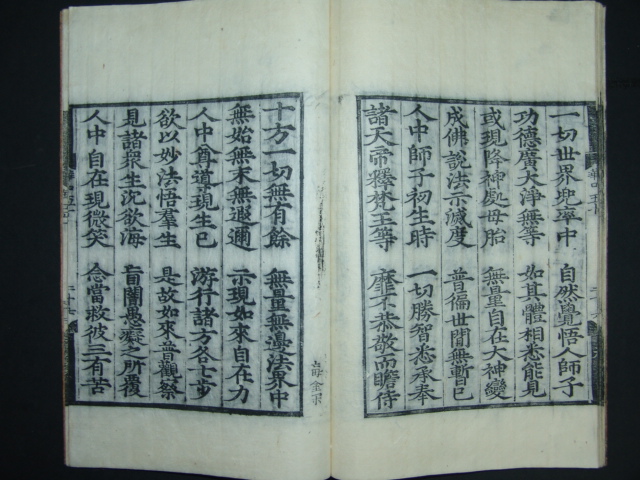 一切世界兜率中 自然覺悟人師子
功德廣大淨無等 如其體相悉能見
或現降神處母胎 無量自在大神變
成佛說法示滅度 普徧世間無暫已
人中師子初生時 一切勝智悉承奉
諸天帝釋梵王等 靡不恭敬而瞻侍
十方一切無有餘 無量無邊法界中
無始無末無遐邇 示現如來自在力
人中尊導現生已 游行諸方各七步
欲以妙法悟羣生 是故如來普觀察
見諸衆生沈欲海 盲闇愚癡之所覆
人中自在現微笑 念當救彼三有苦